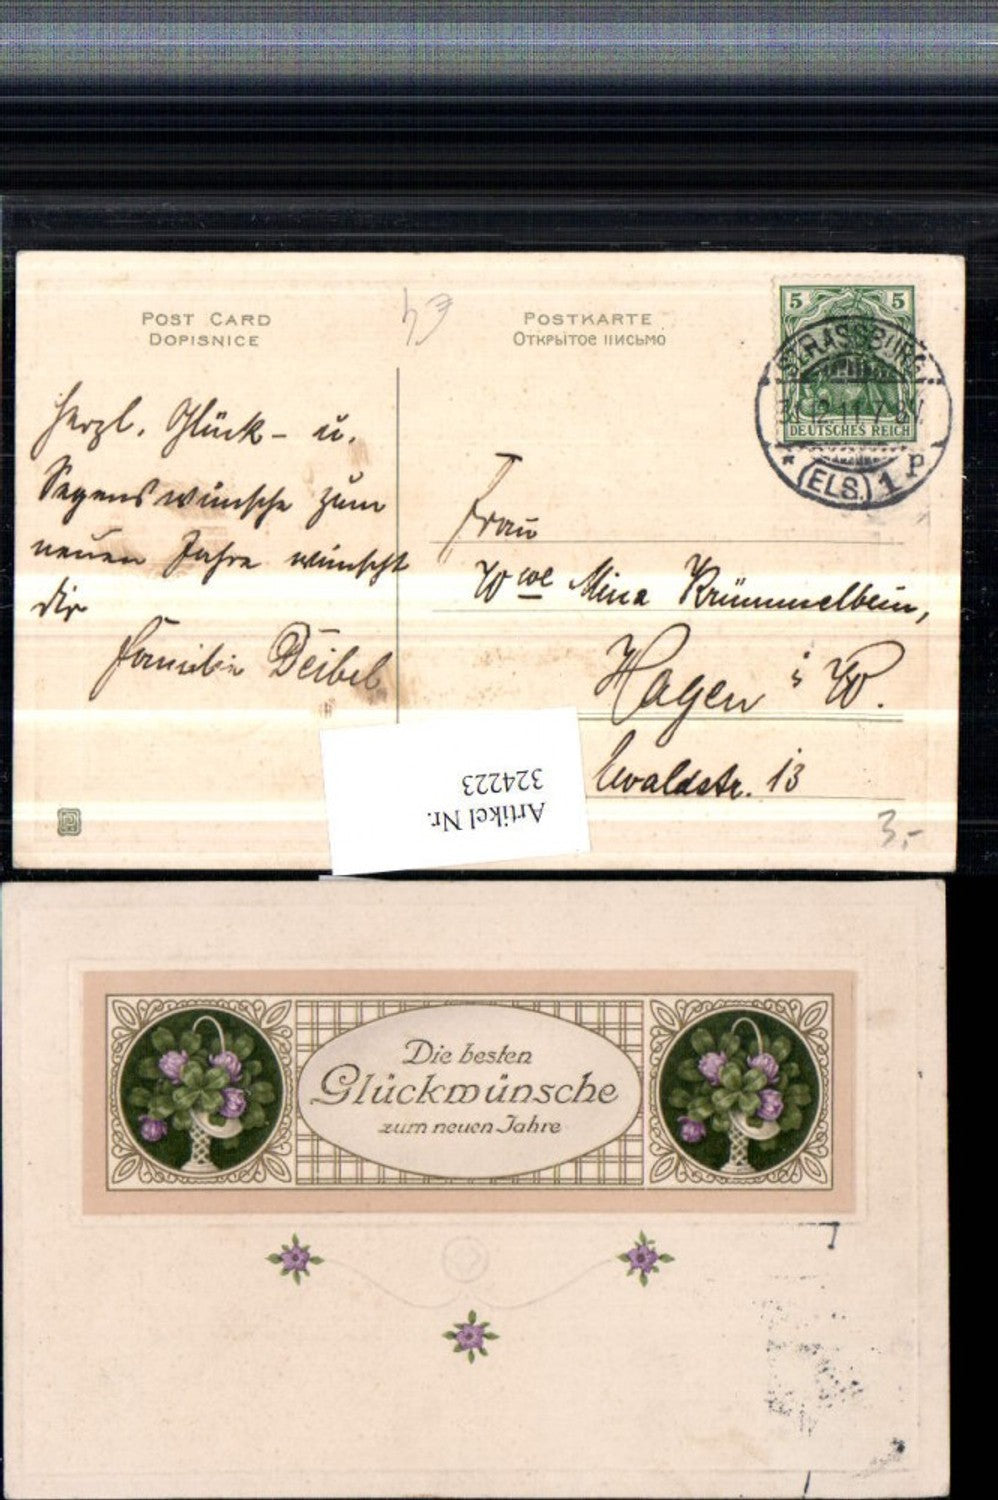 POST CARD
DOPISNICE
POSTKARTE
Открытое письмо
5 5
DEUTSCHES REICH
STRASSBURG
31.12.11.7-8V
* (ELS.) 1 P
herzl. Glück- u.
Segenswünsche zum
neuen Jahre wünscht
dir
Familie Deibel
Frau
Wwe Mina Krümmelbein,
Hagen i W.
Ewaldstr. 13
3,-
Artikel Nr.
324223
Die besten
Glückwünsche
zum neuen Jahre